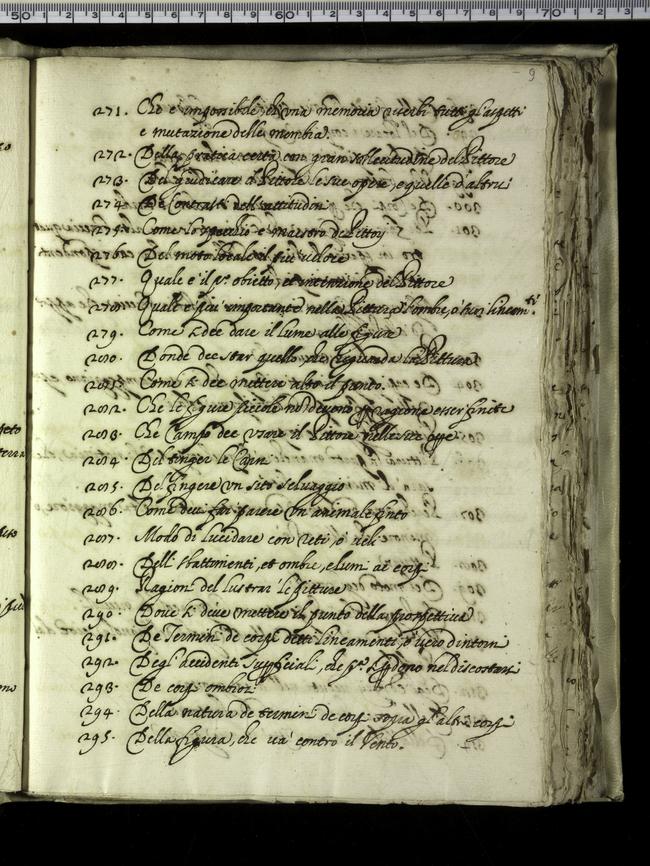 9
271. Che è impossibile, ch'una memoria riserbi tutti gl'aspetti
e mutazione delle membra
272. Della pratica certa con gran sollecitudine del Pittore
273. Del giudicare il Pittore le sue opere, e quelle d'altrui
274. De Contrasti nell'attitudini
275. Come lo specchio è maestro de Pittori
276. Del moto locale il più veloce
277. Quale è il p.º obietto, et intentione del Pittore
278. Quale è più importante nella Pittura l'ombre, o suoi lineam.ti
279. Come si dee dare il lume alle figure
280. Donde dee star quello, che riguarda la Pittura
281. Come si dee mettere alto il punto.
282. Che le figure piccole nõ devono p ragione esser finite
283. Che Campo dee usare il Pittore nelle sue opre
284. Del finger le
285. Del fingere un sito selvaggio
286. Come dei far parere un animale finto
287. Modo di lucidare con reti, ò veli
288. Dell' sbattimenti, et ombre, e lumi ai corpi
289. Ragion del lustrar le pitture
290. Dove si deve mettere il punto della prospettiva
291. De Termini de corpi detti lineamenti, ò vero d'intorni
292. Degl' Accidenti superficiali, che p.ª si pdono nel discostarsi
293. De corpi ombrosi
294. Della natura de termini de corpi sopra gl'altri corpi
295. Della figura, che và contro il Vento.